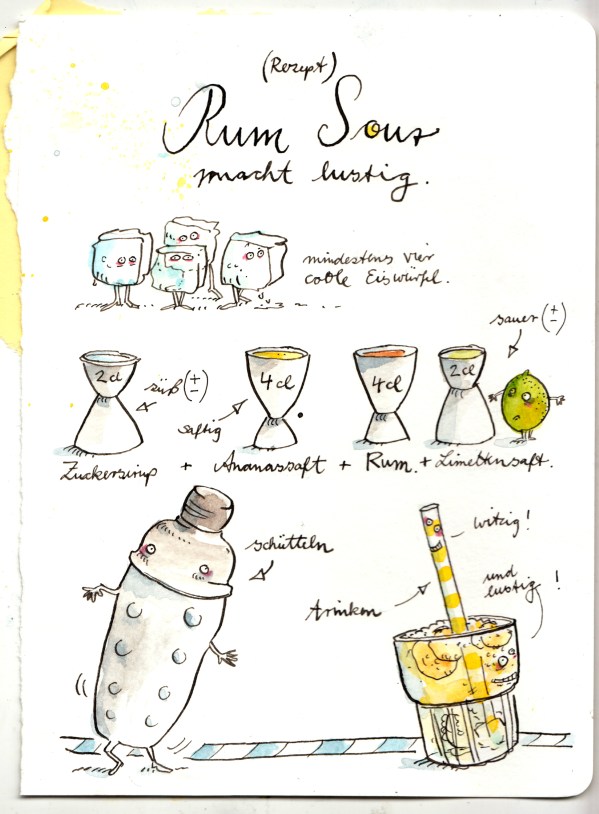 (Rezept)
Rum Sour
macht lustig.
mindestens vier
coole Eiswürfel.
sauer (±)
2cl
süß (±)
4cl
saftig
4cl
2cl
Zuckersirup + Ananassaft + Rum. + Limettensaft.
schütteln
witzig!
und
lustig!
trinken